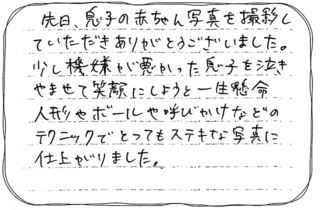 先日、息子の赤ちゃん写真を撮影し
ていただきありがとうございました。
少し機嫌が悪かった息子を泣き
やませて笑顔にしようと一生懸命
人形やボールや呼びかけなどの
テクニックでとってもステキな写真に
仕上がりました。